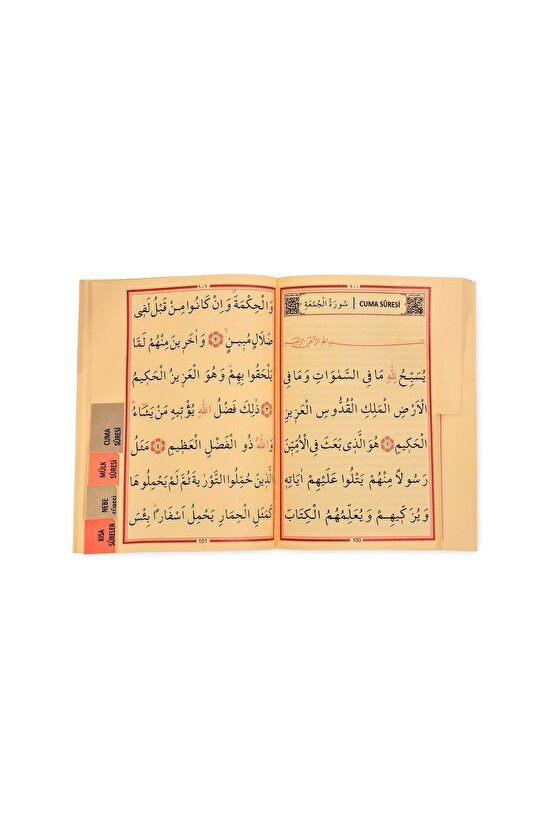 ١٠٠
سُورَةُ الْجُمُعَةِ | CUMA SÛRESİ
بِسْــــمِ اللّٰهِ الرَّحْمٰنِ الرَّحِيمِ
يُسَبِّحُ لِلّٰهِ مَا فِي السَّمٰوَاتِ وَمَا فِي
الْاَرْضِ الْمَلِكِ الْقُدُّوسِ الْعَزِيزِ
الْحَكِيمِ ١ هُوَ الَّذِي بَعَثَ فِي الْاُمِّيّ۪نَ
رَسُولًا مِنْهُمْ يَتْلُوا عَلَيْهِمْ اٰيَاتِهِ
وَيُزَكّ۪يهِمْ وَيُعَلِّمُهُمُ الْكِتَابَ
100
١٠١
وَالْحِكْمَةَ وَاِنْ كَانُوا مِنْ قَبْلُ لَفِي
ضَلَالٍ مُبِينٍ ٢ وَاٰخَرِينَ مِنْهُمْ لَمَّا
يَلْحَقُوا بِهِمْ وَهُوَ الْعَزِيزُ الْحَكِيمُ
٣ ذٰلِكَ فَضْلُ اللّٰهِ يُؤْتِيهِ مَنْ يَشَاءُ
وَاللّٰهُ ذُو الْفَضْلِ الْعَظِيمِ ٤ مَثَلُ
الَّذِينَ حُمِّلُوا التَّوْرٰيةَ ثُمَّ لَمْ يَحْمِلُوهَا
كَمَثَلِ الْحِمَارِ يَحْمِلُ اَسْفَارًا بِئْسَ
101
CUMA
SÛRESİ
MÜLK
SÛRESİ
NEBE
KISA
SÛRELER